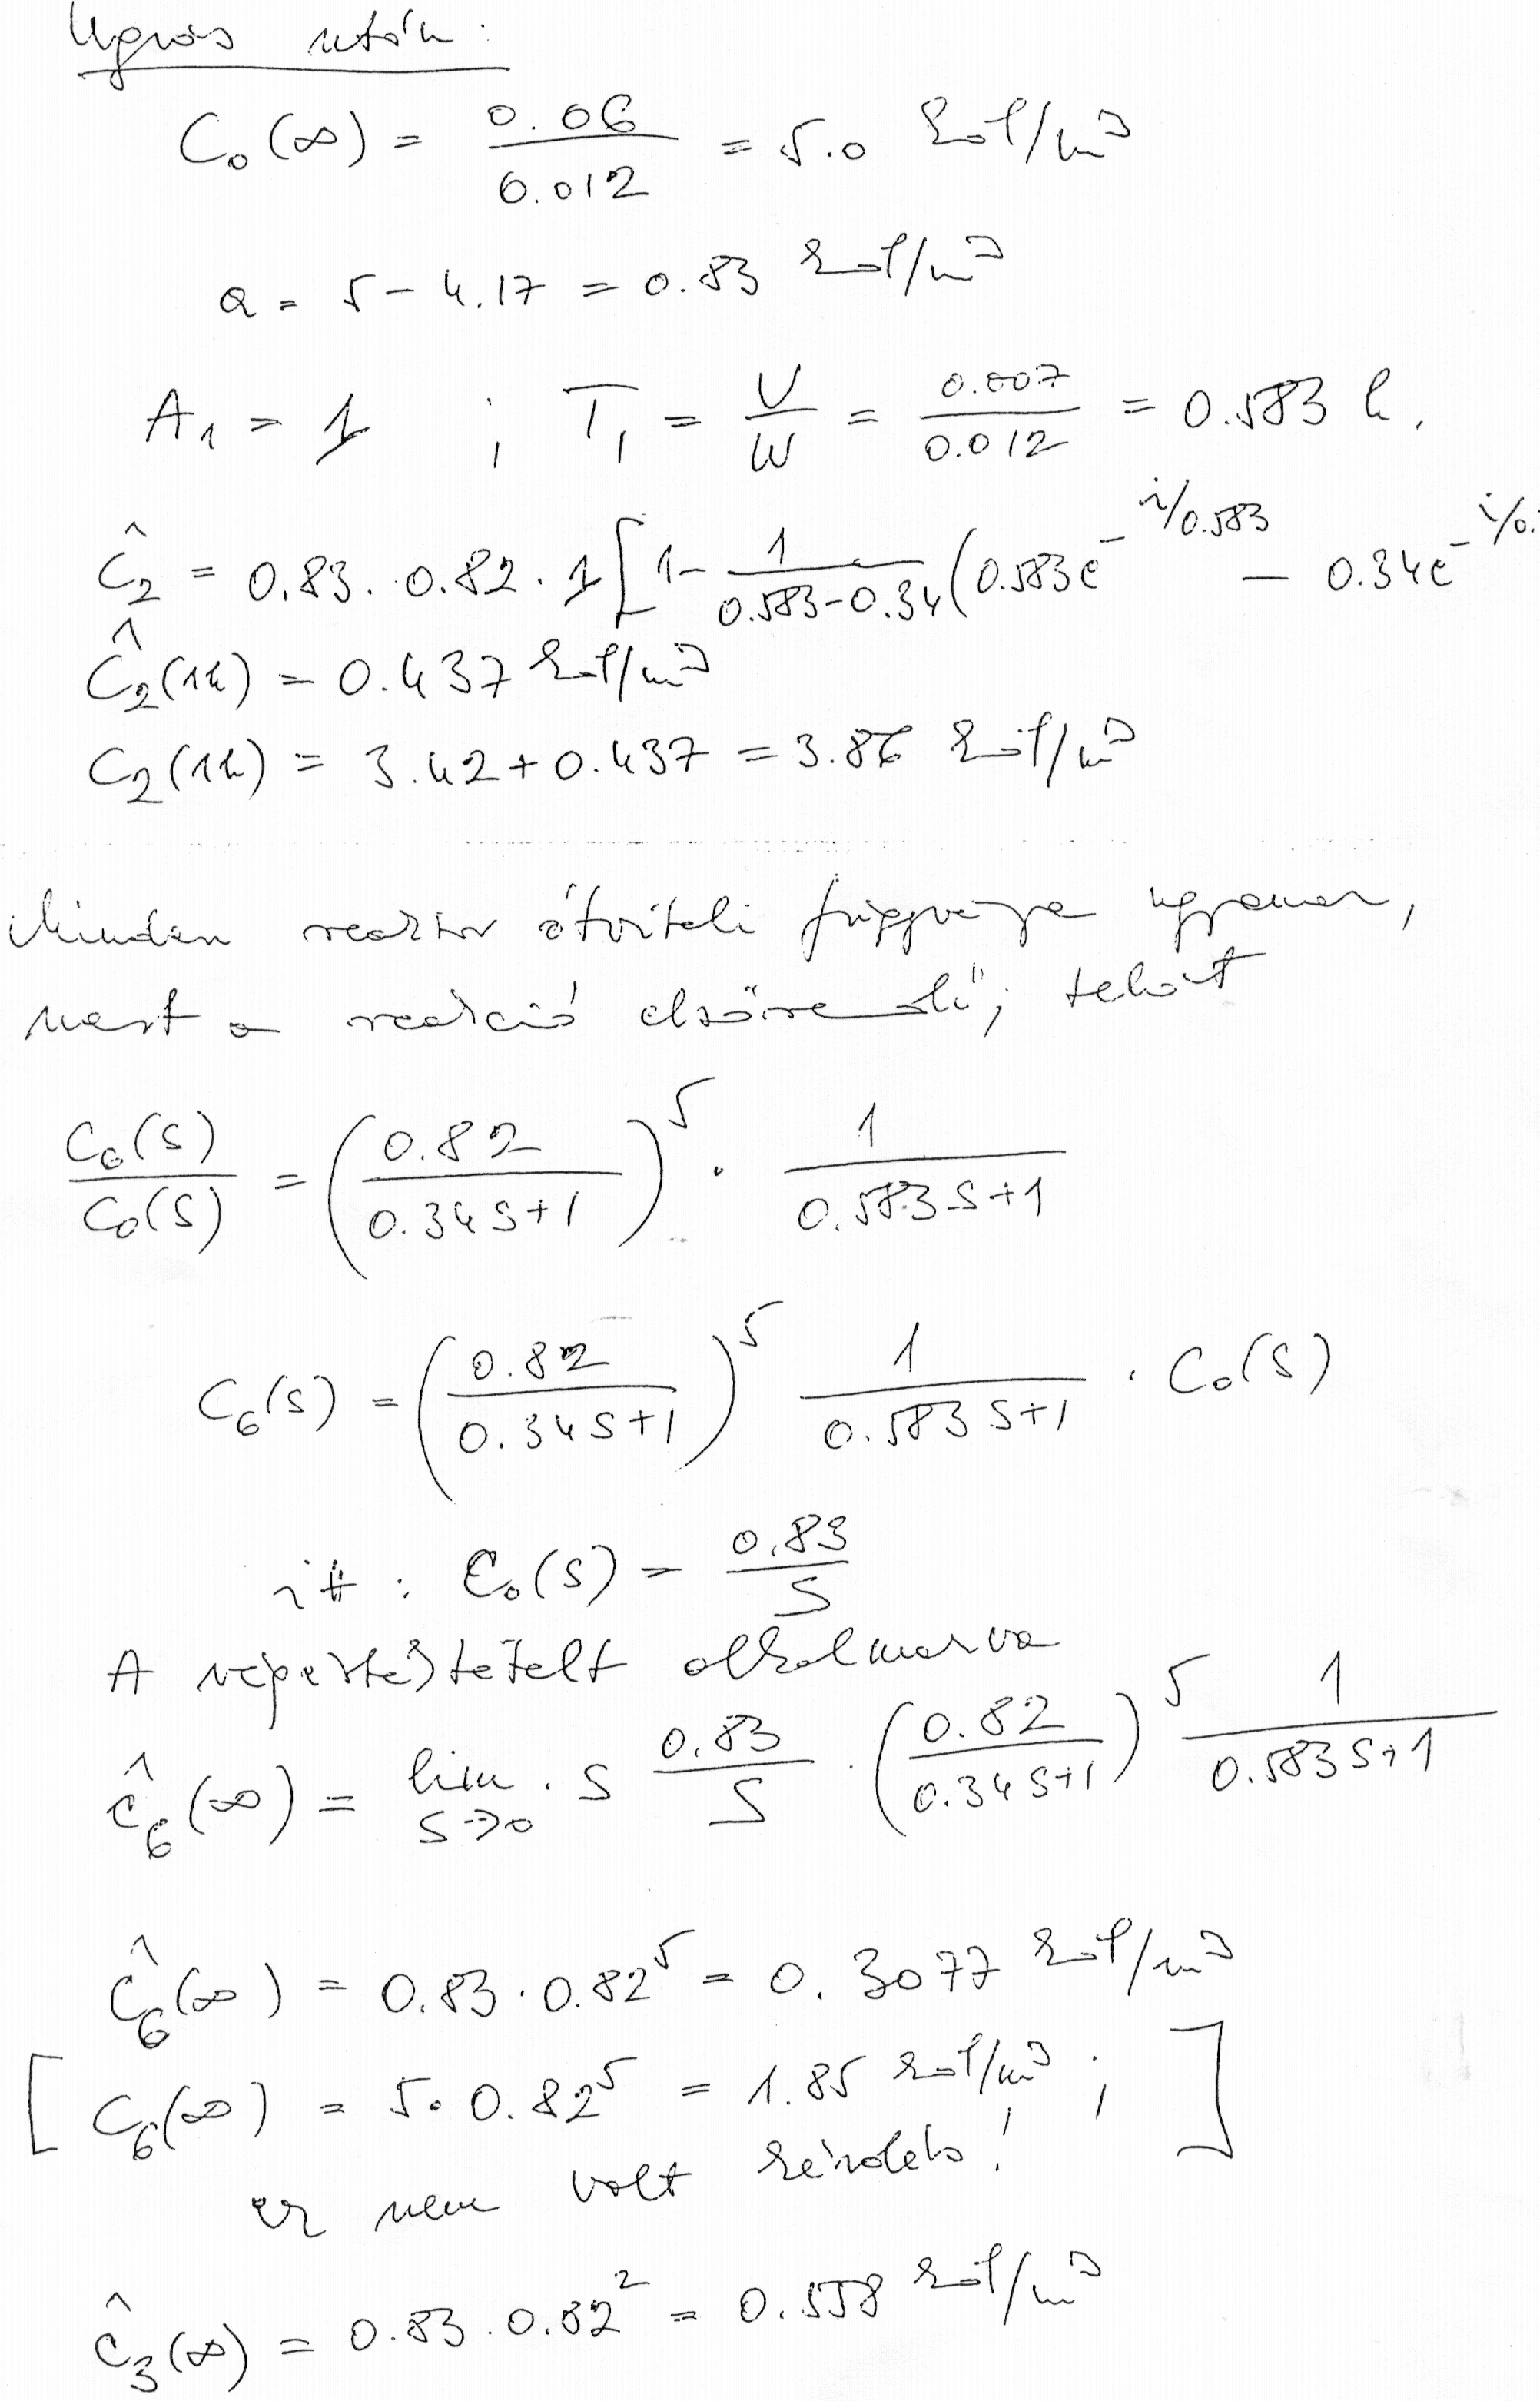 Ugrás után:
C₀(∞) = 0.06 / 0.012 = 5.0 kmol/m³
a = 5 - 4.17 = 0.83 kmol/m³
A₁ = 1 ; T₁ = V/W = 0.007 / 0.012 = 0.583 h.
Ĉ₂ = 0.83 · 0.82 · 1 [1 - 1/(0.583-0.34) (0.583e^(-t/0.583) - 0.34e^(-t/0.
Ĉ₂(1h) = 0.437 kmol/m³
C₂(1h) = 3.42 + 0.437 = 3.86 kmol/m³
Minden reaktor átviteli függvénye ugyanaz,
mert a reakció elsőrendű; tehát
C₆(s)/C₀(s) = (0.82 / (0.34s+1))⁵ · 1 / (0.583s+1)
C₆(s) = (0.82 / (0.34s+1))⁵ 1 / (0.583s+1) · C₀(s)
itt : C₀(s) = 0.83 / s
A végértéktételt alkalmazva
ĉ₆(∞) = lim s→0 · s 0.83/s · (0.82 / (0.34s+1))⁵ 1 / (0.583s+1)
Ĉ₆(∞) = 0.83 · 0.82⁵ = 0.3077 kmol/m³
[ C₆(∞) = 5 · 0.82⁵ = 1.85 kmol/m³ ; ]
ez nem volt kérdés!
ĉ₃(∞) = 0.83 · 0.82² = 0.558 kmol/m³